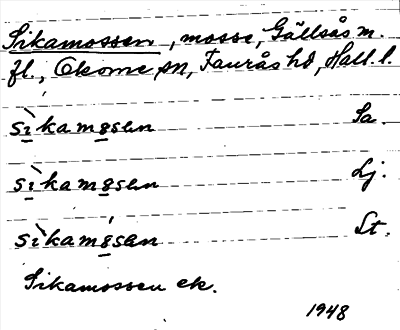 Sikamossen, mosse, Gällsås m.
fl., Okome sn, Faurås hd, Hall. l.
sì̱kamo̱sən Sa.
sì̱kamo̱sən Lj.
sì̱kamo̱sən St.
Sikamossen ek.
1948